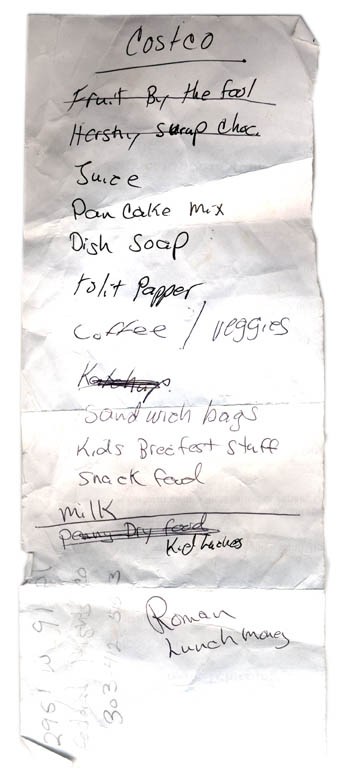 Costco
Fruit By the foot
Hershy surup Choc.
Juice
Pancake mix
Dish Soap
tolit Papper
Coffee / veggies
Ketchup
Sandwich bags
Kids Brecfest Stuff
Snack food
milk
Dry food
Kid Luches
Roman
Lunch money
2981 W 91
303 412